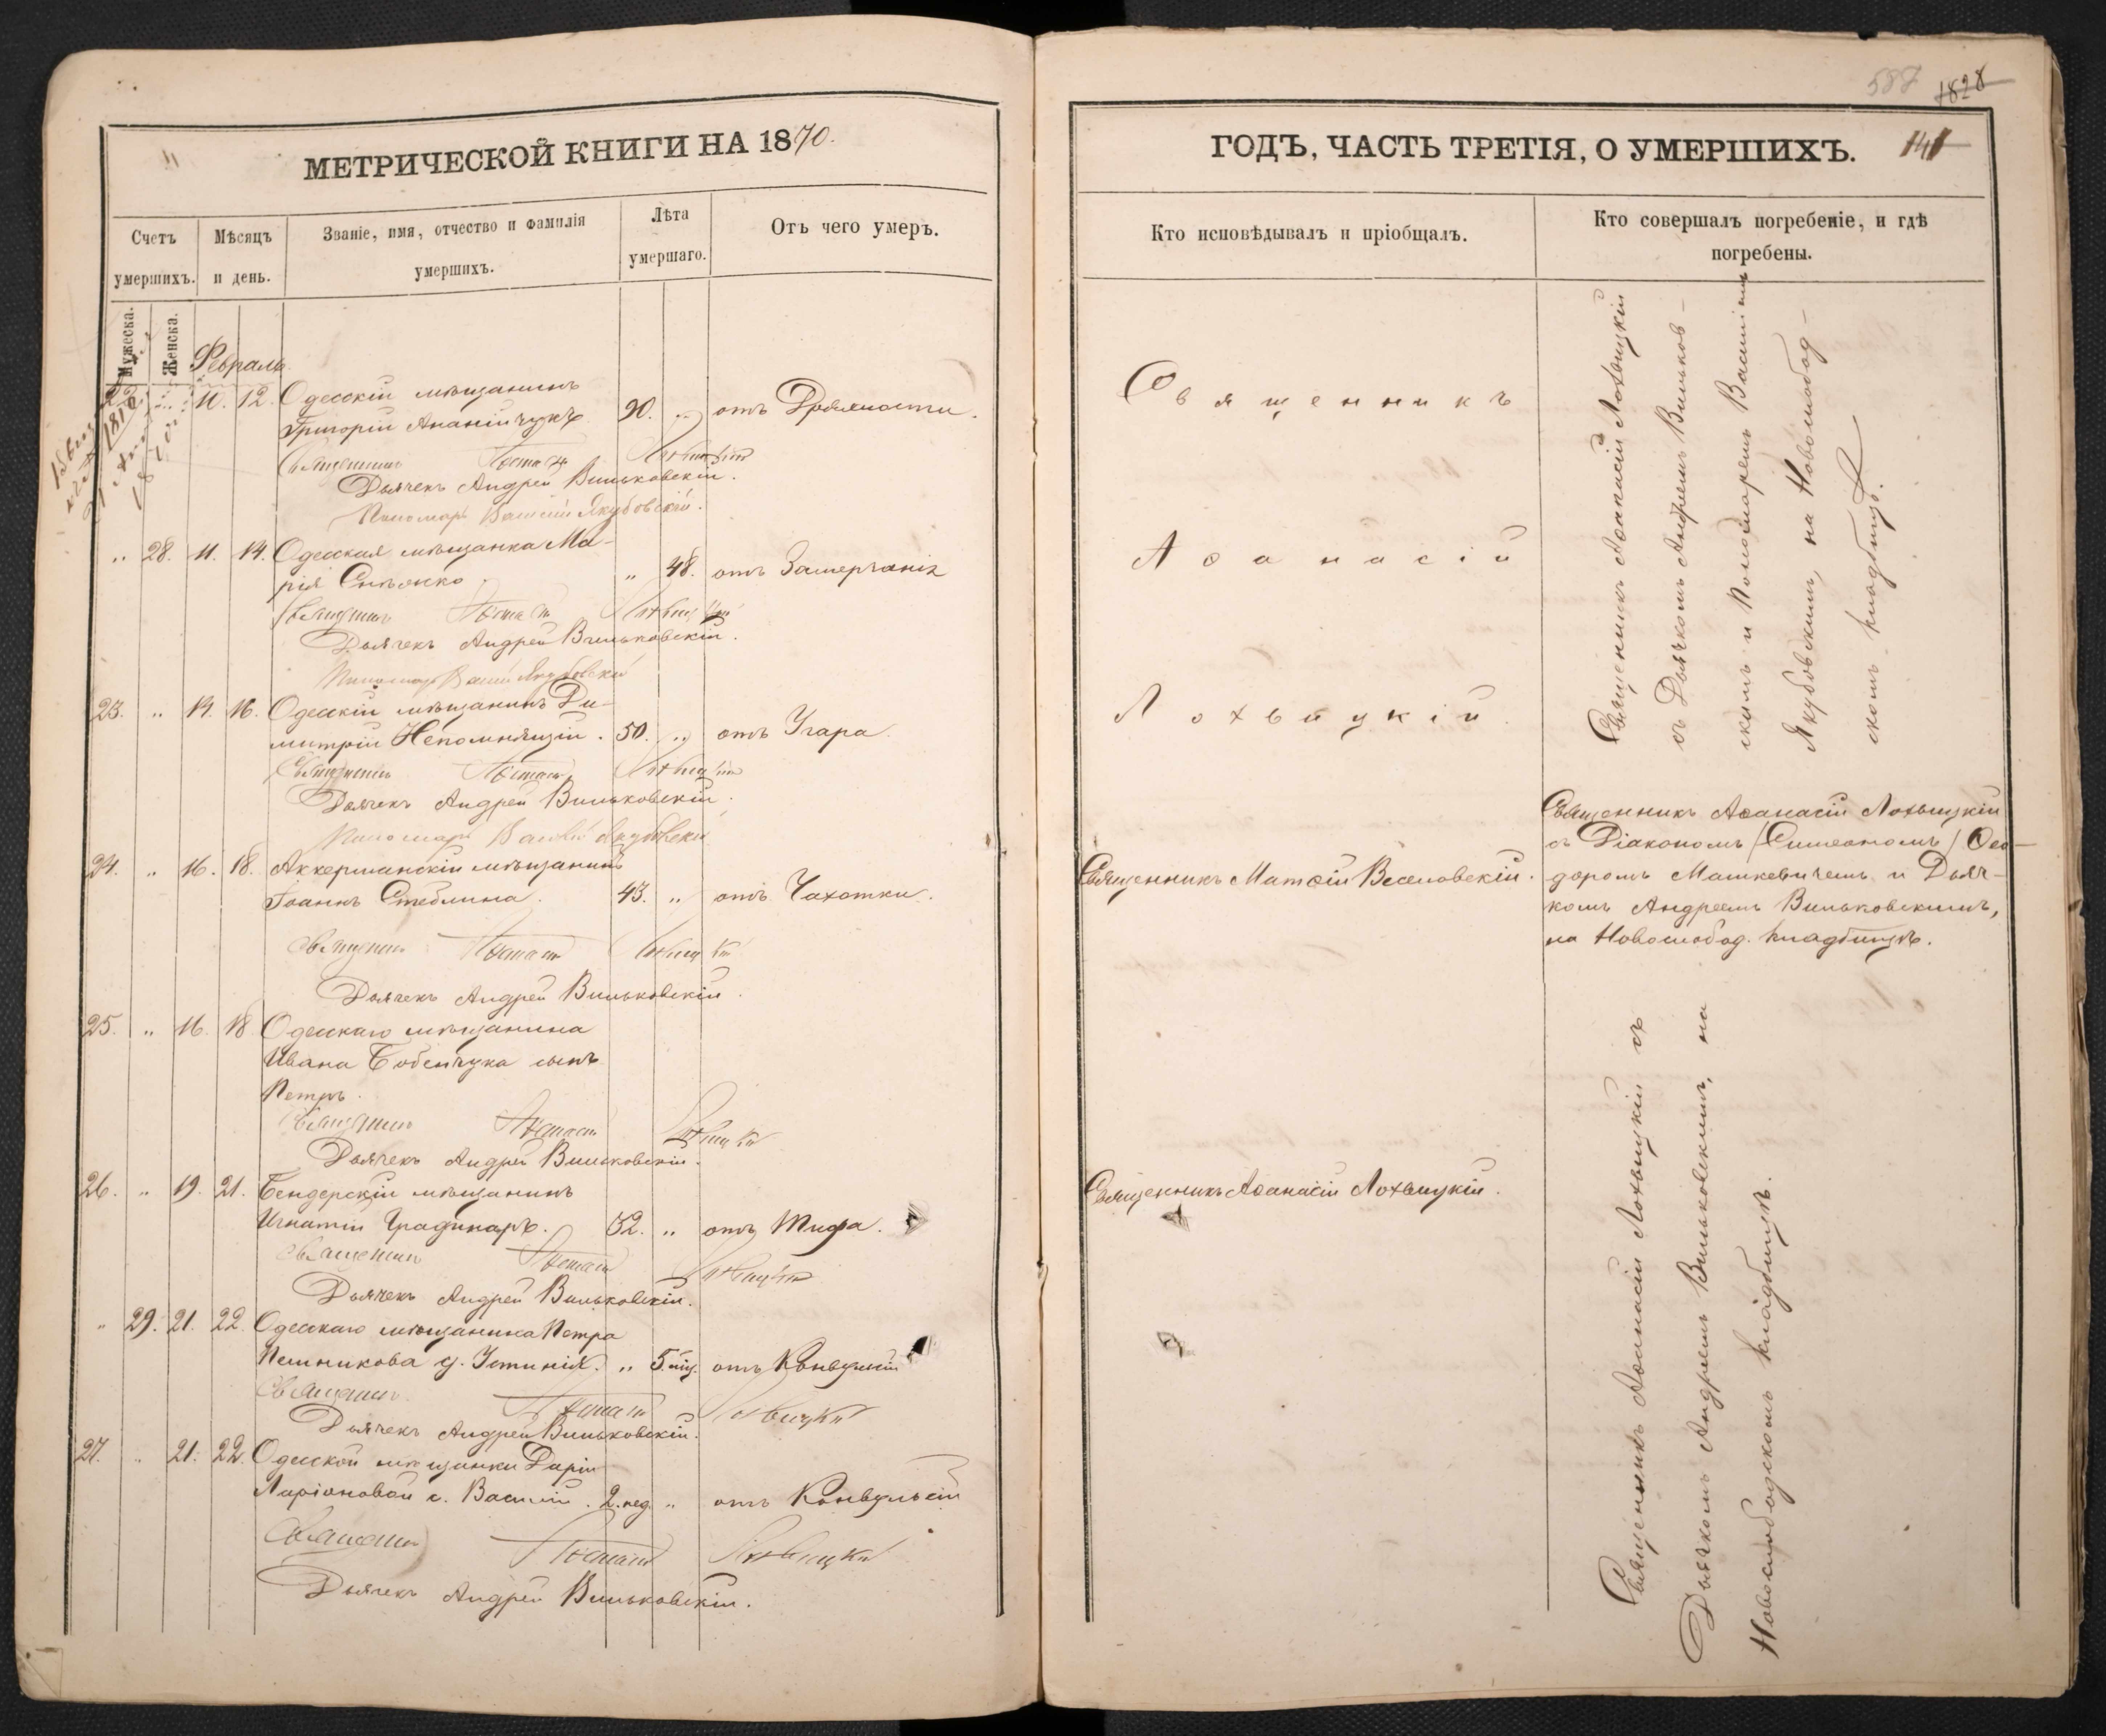 МЕТРИЧЕСКОЙ КНИГИ НА 1870.
Счетъ умершихъ.
Мѣсяцъ и день.
Званіе, имя, отчество и фамилія умершихъ.
Лѣта умершаго.
Отъ чего умеръ.
Мужеска.
Женска.
Февраль
22. „ 11. 12. Одесскій мѣщанинъ
Григорій Ананійчукъ. 90. „ отъ Дряхлости.
Священникъ Аѳанасій Лохвицкій
Дьячекъ Андрей Вильковскій.
Пономарь Василій Якубовскій.
„ 28. 11. 14. Одесская мѣщанка Ма-
рія „ 48. отъ
Священникъ Аѳанасій Лохвицкій
Дьячекъ Андрей Вильковскій.
Пономарь Василій Якубовскій
23. „ 14. 16. Одесскій мѣщанинъ Ди-
митрій Непомнящій. 50. „ отъ Угара.
Священникъ Аѳанасій Лохвицкій
Дьячекъ Андрей Вильковскій.
Пономарь Василій Якубовскій
24. „ 16. 18. Аккерманскій мѣщанинъ
Іоаннъ Стеблина. 43. „ отъ Чахотки.
Священникъ Аѳанасій Лохвицкій
Дьячекъ Андрей Вильковскій.
25. „ 16. 18 Одесскаго мѣщанина
Ивана Бобейчука сынъ
Петръ.
Священникъ Аѳанасій Лохвицкій
Дьячекъ Андрей Вильковскій.
26. „ 19. 21. Бендерскій мѣщанинъ
Игнатій Градинаръ. 52. „ отъ Тифа.
Священникъ Аѳанасій Лохвицкій
Дьячекъ Андрей Вильковскій.
„ 29. 21. 22. Одесскаго мѣщанина Петра
д. Устинія. „ 5. мѣс. отъ Конвульсій
Священникъ Аѳанасій Лохвицкій
Дьячекъ Андрей Вильковскій.
27. „ 21. 22. Одесской мѣщанки Даріи
Ларіоновой с. Василій. 2. нед. „ отъ Конвульсій
Священникъ Аѳанасій Лохвицкій
Дьячекъ Андрей Вильковскій.
1828
ГОДЪ, ЧАСТЬ ТРЕТІЯ, О УМЕРШИХЪ. 141
Кто исповѣдывалъ и пріобщалъ.
Кто совершалъ погребеніе, и гдѣ
погребены.
Священникъ
Аѳанасій
Лохвицкій.
Священникъ Матѳій Веселовскій.
Священникъ Аѳанасій Лохвицкій.
Священникъ Аѳанасій Лохвицкій
съ Дьячкомъ Андреемъ Вильков-
скимъ и Пономаремъ Василіемъ
Якубовскимъ, на Новослобод-
скомъ кладбищѣ.
Священникъ Аѳанасій Лохвицкій
съ Діакономъ /Симеономъ/ Ѳео-
доромъ Машкевичемъ и Дьяч-
комъ Андреемъ Вильковскимъ,
на Новослобод. кладбищѣ.
Священникъ Аѳанасій Лохвицкій съ
Дьячкомъ Андреемъ Вильковскимъ, на
Новослободскомъ кладбищѣ.